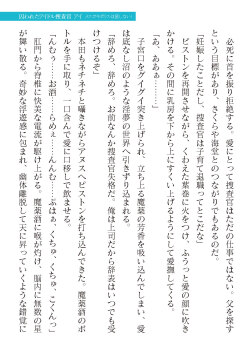 必死に首を振り拒絶する。愛にとって捜査官はただの仕事ではない。父を探す
という目標があり、さくらや海堂とのつながりでもあるのだ。
「妊娠したことだし、捜査官は子育て退職ってとこだな」
ピストンを再開させながら、くわえた葉巻に火をつけ、ふうっと愛の顔に吹き
かける。その間に乳房を下から上にすくい上げるようにして愛撫してくる。
「あ、あああ……」
子宮口をグイグイ突き上げられ、立ち上る魔薬の芳香を吸い込んでしまい、愛
は底なし沼のような淫夢の世界へ引きずり込まれる。
「辞めちまえよ。お前なんか捜査官失格だ。俺は上司だから辞表はいつでも受
けつけるぞ」
本田もネチネチと囁きながらアヌスへピストンを打ち込んできた。魔薬酒のボ
トルを手に取り、一口含んで愛に口移しで飲ませる。
「んむぅ……お酒……らめぇ……むふぁ、くちゅ、くちゅ、ごくんっ」
肛門から脊椎に快美な電流が駆け上る。魔薬酒に喉が灼け、脳内に無数の星
が舞い散る。奇妙な浮遊感に包まれ、幽体離脱して天に昇っていくような錯覚に